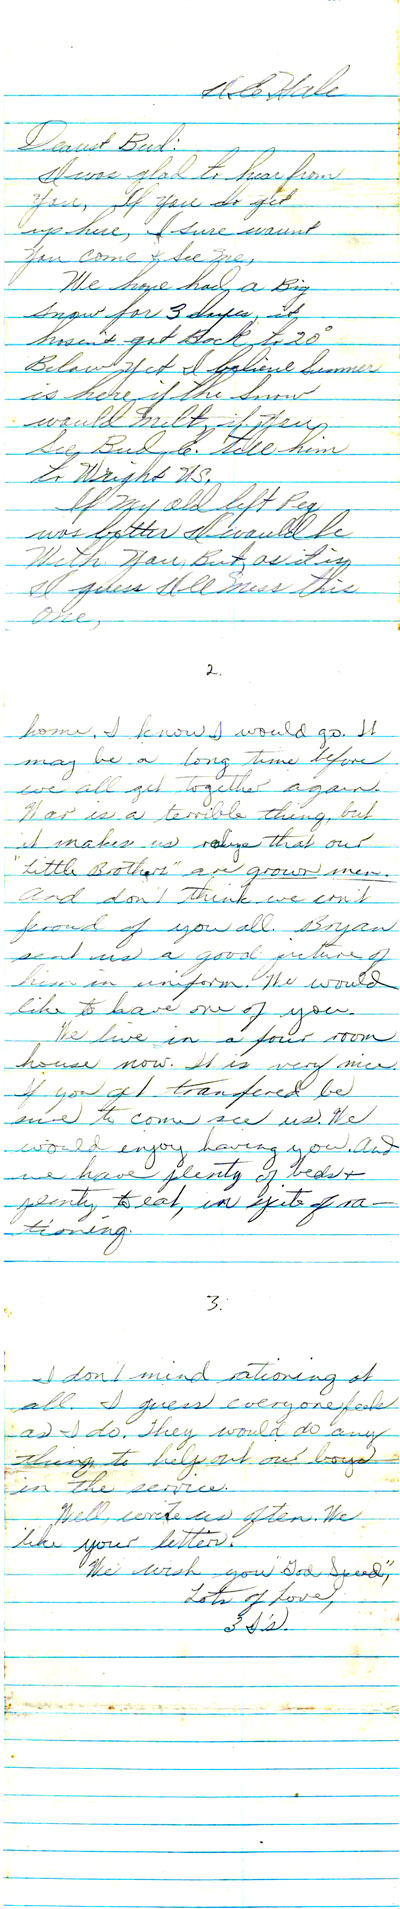 Dearest Bud:
I was glad to hear from
you, If you do get
up here, I sure waunt
you come & see me,
We have had a Big
snow for 3 dayes, it
hasen't got Back to 20°
Below yet I believe Summer
is here if the Snow
would melt, if you
see Bud C. tell him
to Wright us.
If my old left Peg
was better I would be
With you, But as it is
I guess I'll miss this
one,
2.
home, I know I would go. It
may be a long time before
we all get together again.
War is a terrible thing, but
it makes us that our
"Little Brothers" are grown men.
And don't think we isn't
proud of you all. Bryan
sent us a good picture of
him in uniform. We would
like to have one of you.
We live in a four room
house now. It is very nice.
If you get transfered be
sure to come see us. We
would enjoy having you. And
we have plenty of beds +
plenty to eat, in spite of ra-
tioning.
3.
I don't mind rationing at
all. I guess everyone feels
as I do. They would do any
thing to help out our boys
in the service.
Well, write us often. We
like your letters.
We wish you "God Speed",
Lots of Love,
3 I's.